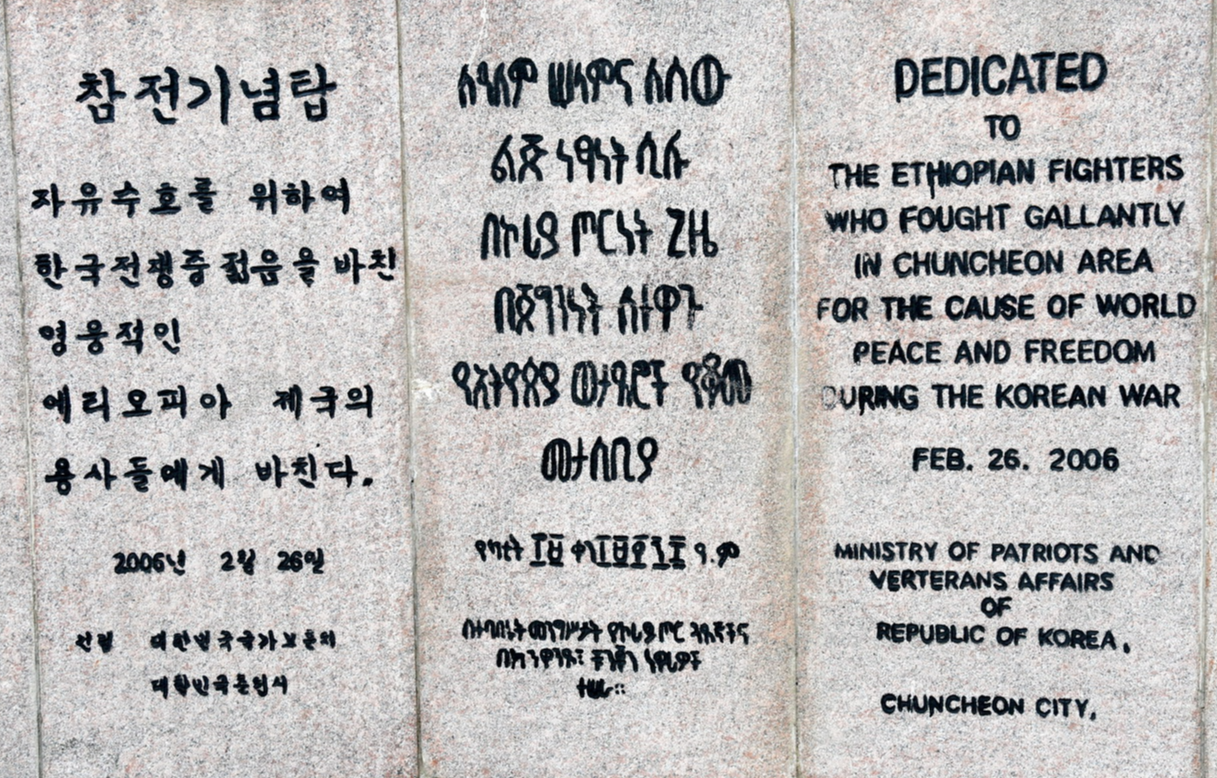 참전기념탑
자유수호를 위하여
한국전쟁중 젊음을 바친
영웅적인
에티오피아 제국의
용사들에게 바친다.
2006년 2월 26일
건립 대한민국국가보훈처
ለዓለም ሠላምና ለሰው
ልጅ ነፃነት ሲሉ
በኮሪያ ጦርነት ጊዜ
በጀግንነት ለተዋጉ
የኢትዮጵያ ወታደሮች የቆመ
መታሰቢያ
የካቲት ዓ.ም
DEDICATED
TO
THE ETHIOPIAN FIGHTERS
WHO FOUGHT GALLANTLY
IN CHUNCHEON AREA
FOR THE CAUSE OF WORLD
PEACE AND FREEDOM
DURING THE KOREAN WAR
FEB. 26. 2006
MINISTRY OF PATRIOTS AND
VERTERANS AFFAIRS
OF
REPUBLIC OF KOREA,
CHUNCHEON CITY,